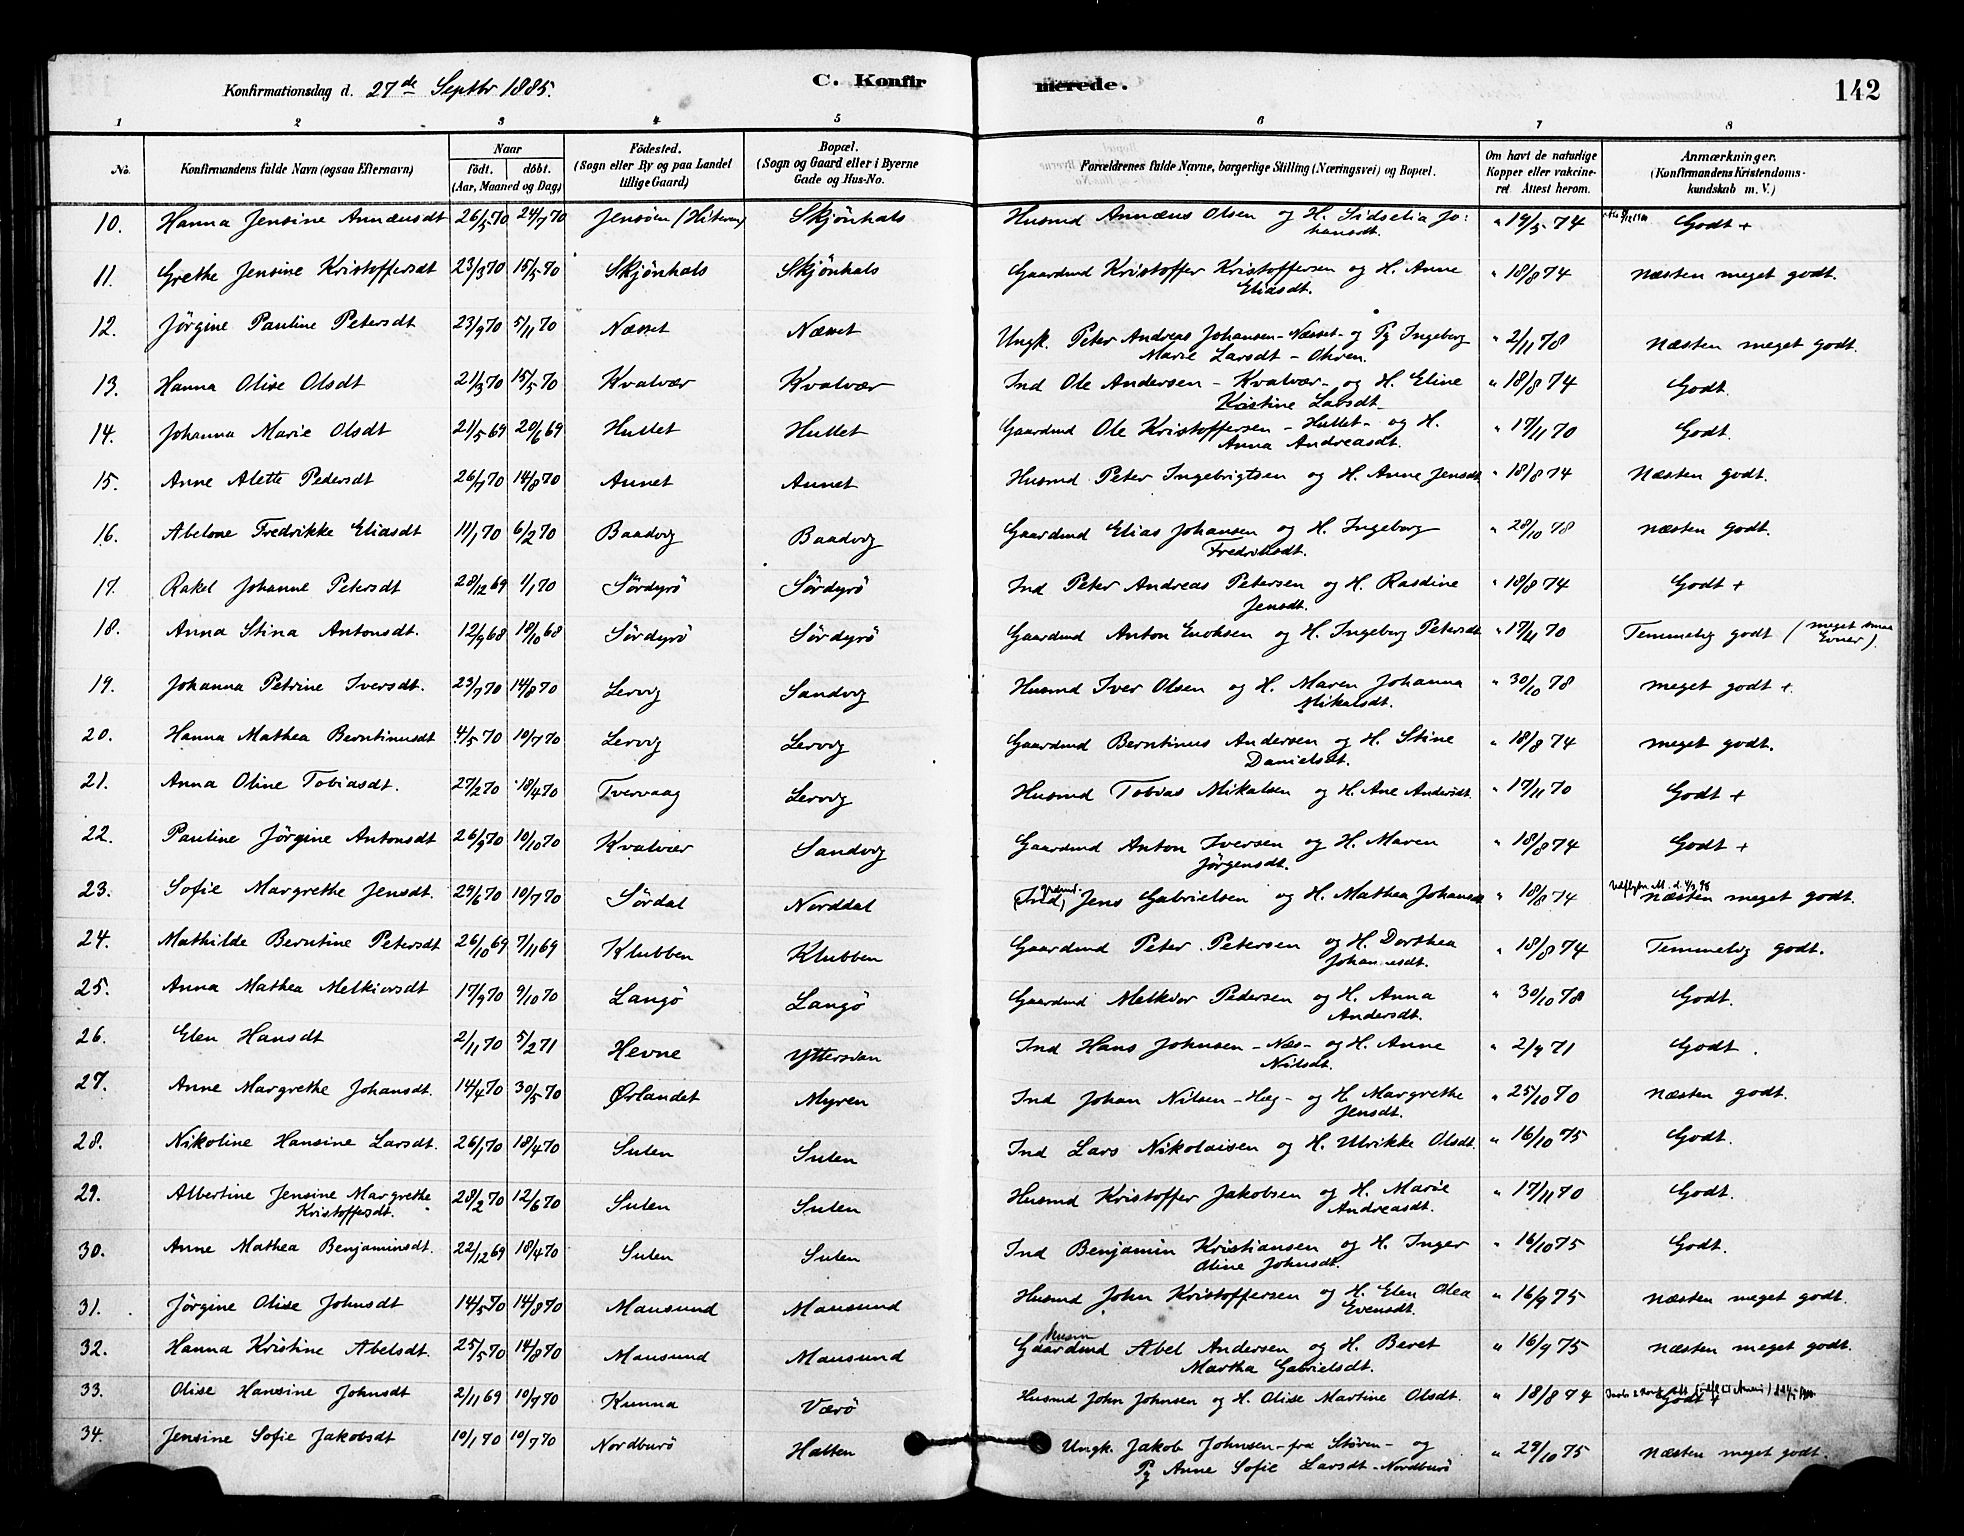 Konfirmationsdag d. 27de Septbr 1885. C. Konfirmerede. 142
1 2 3 4 5 6 7 8
No. Konfirmandens fulde Navn (ogsaa Efternavn) Naar födt. döbt. (Aar, Maaned og Dag) Födested. (Sogn eller By og paa Landet tillige Gaard) Bopæl. (Sogn og Gaard eller i Byerne Gade og Hus-No. Forældrenes fulde Navne, borgerlige Stilling (Næringsvei) og Bopæl. Om havt de naturlige Kopper eller vakcineret. Attest herom. Anmærkninger. (Konfirmandens Kristendomskundskab m. V.)
10. Hanna Jensine Annænsdt 26/5 70 24/7 70 Jensöen (Hiteren) Skjönhals Husmd Annæus Olsen og H. Lidselia Johansdt. " 19/5 74 Godt +
11. Grethe Jensine Kristoffersdt 23/3 70 15/5 70 Skjönhals Skjönhals Gaardmd Kristoffer Kristoffersen og H. Anne Eliasdt. " 18/8 74 Næsten meget godt.
12. Jörgine Pauline Petersdt 23/9 70 5/11 70 Næsset Næsset Ungk. Peter Andreas Johansen - Næsset - og Pg Ingeborg Marie Larsdt - Ohren. " 2/11 78 Næsten meget godt.
13. Hanna Olise Olsdt 21/3 70 15/5 70 Kvalvær Kvalvær Ind Ole Andersen - Kvalvær - og H. Eline Kristine Larsdt - " 18/8 74 Godt.
14. Johanna Marie Olsdt 21/5 69 20/6 69 Hullet Hullet Gaardmd Ole Kristoffersen - Hullet - og H. Anna Andreasdt. " 17/11 70 Godt.
15. Anne Alette Pedersdt 26/7 70 14/8 70 Aunet Aunet Husmd Peter Ingebrigtsen og H. Anne Jensdt " 18/8 74 Næsten godt.
16. Abelone Fredrikke Eliasdt 11/1 70 6/2 70 Baadvig Baadvig Gaardmd Elias Johansen og H. Ingeborg Fredriksdt. " 28/10 78 Næsten godt.
17. Rakel Johanne Petersdt 28/12 69 1/1 70 Sördyrö Sördyrö Ind Peter Andreas Petersen og H. Rasdine Jensdt. " 18/8 74 Godt +
18. Anna Stina Antonsdt. 12/9 68 18/10 68 Sördyrö Sördyrö Gaardmd Anton Enoksen og H. Ingeborg Petersdt " 17/11 70 Temmelig godt (meget smaa Evner).
19. Johanna Petrine Iversdt. 23/7 70 14/8 70 Lervig Sandvig Husmd Iver Olsen og H. Maren Johanna Mikalsdt. " 30/10 78 Meget godt +.
20. Hanna Mathea Berntinusdt 4/5 70 10/7 70 Lervig Lervig Gaardmd Berntinus Andersen og H. Stine Danielsdt. " 18/8 74 Meget godt.
21. Anna Oline Tobiasdt. 27/2 70 18/4 70 Tvervaag Lervig Husmd Tobias Mikalsen og H. Ane Andersdt. " 17/11 70 Godt +
22. Pauline Jörgine Antonsdt 26/9 70 10/10 70 Kvalvær Sandvig Gaardmd Anton Iversen og H. Maren Jörgensdt. " 18/8 74 Godt +
23. Sofie Margrethe Jensdt. 29/6 70 10/7 70 Sördal Norddal (Ind) Jens Gabrielsen og H. Mathea Johansdt " 18/8 74 Næsten meget godt.
24. Mathilde Berntine Petersdt 26/10 69 7/11 69 Klubben Klubben Gaardmd Peter Petersen og H. Dorthea Johannesdt. " 18/8 74 Temmelig godt.
25. Anna Mathea Melkiorsdt 17/9 70 9/10 70 Langö Langö Gaardmd Melkior Pedersen og H. Anna Andersdt. " 30/10 78 Godt.
26. Elen Hansdt 2/11 70 5/2 71 Hevne Yttersian Ind Hans Johnsen - Næs - og H. Anne Nilsdt. " 2/9 71 Godt.
27. Anne Margrethe Johansdt. 14/4 70 30/5 70 Ørlandet Myren Ind Johan Nilsen - Hæg - og H. Margrethe Jensdt. " 25/10 70 Næsten godt.
28. Nikoline Hansine Larsdt. 26/1 70 18/4 70 Sulen Sulen Ind Lars Nikolaisen og H. Ulrikke Olsdt. " 16/10 75 Godt.
29. Albertine Jensine Margrethe Kristoffersdt. 28/2 70 12/6 70 Sulen Sulen Husmd Kristoffer Jakobsen og H. Marie Andreasdt. " 17/11 70 Godt.
30. Anne Mathea Benjaminsdt. 22/12 69 18/4 70 Sulen Sulen Ind Benjamin Kristiansen og H. Inger Oline Johnsdt. " 16/10 75 Godt.
31. Jörgine Olise Johnsdt 14/5 70 14/8 70 Mausund Mausund Husmd John Kristoffersen og H. Elen Olea Evensdt. " 16/9 75 Næsten meget godt.
32. Hanna Kristine Abelsdt. 25/5 70 14/8 70 Mausund Mausund Gaardmd Abel Andersen og H. Beret Martha Gabrielsdt. " 16/9 75 Næsten meget godt.
33. Olise Hansine Johnsdt 2/11 69 10/7 70 Kunna Værö Husmd John Johnsen og H. Olise Martine Olsdt. " 18/8 74 Godt +
34. Jensine Sofie Jakobsdt 10/1 70 10/7 70 Nordburö Halten Ungk. Jakob Johnsen - fra Stören - og Pg Anne Sofie Larsdt - Nordburö " 29/10 75 Næsten meget godt.